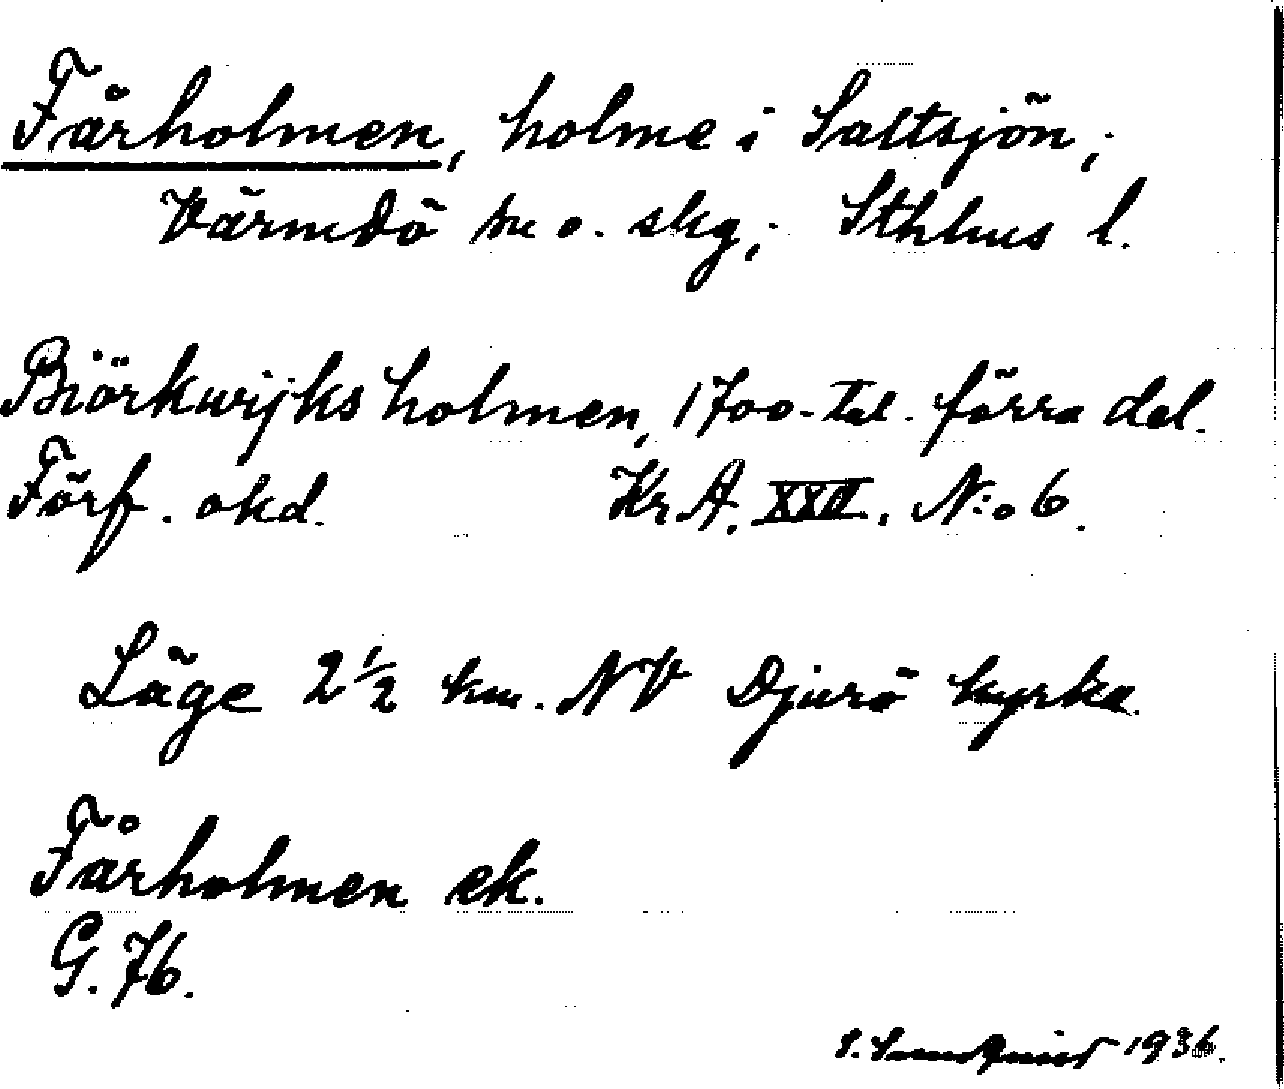 Fårholmen, holme i Saltsjön,
Värmdö sn o. skg, Sthlms l.
Biörkwijks holmen, 1700-tal. förra del.
Förf. okd. Kr.A. XXII. N:o 6.
Läge 2 1/2 km. NV Djurö kyrka.
Fårholmen ek.
G. 76.
S. Sundquist 1936.